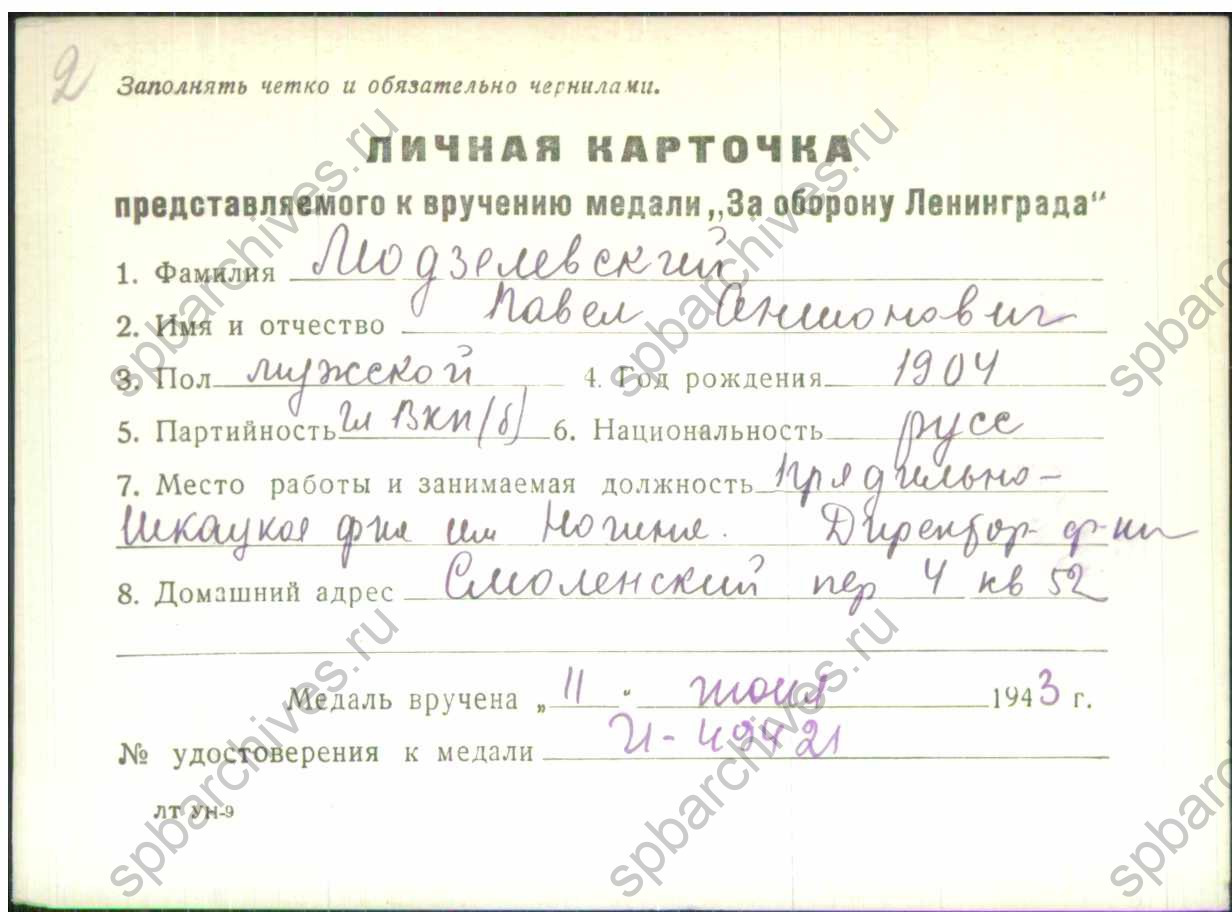 2
Заполнять четко и обязательно чернилами.
ЛИЧНАЯ КАРТОЧКА
представляемого к вручению медали „За оборону Ленинграда“
1. Фамилия Модзелевский
2. Имя и отчество Павел
3. Пол мужской 4. Год рождения 1904
5. Партийность чл ВКП(б) 6. Национальность русс
7. Место работы и занимаемая должность Прядильно-
Ткацкая ф-ка им Ногина. Директор ф-ки
8. Домашний адрес Смоленский пер 4 кв 52
Медаль вручена „11“ июля 1943 г.
№ удостоверения к медали
ЛТ УН-9
spbarchives.ru
spbarchives.ru
spbarchives.ru
spbarchives.ru